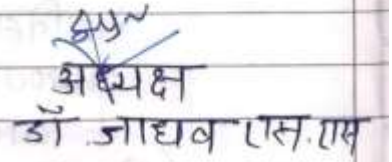 अध्यक्ष
डॉ जाधव एस.एस